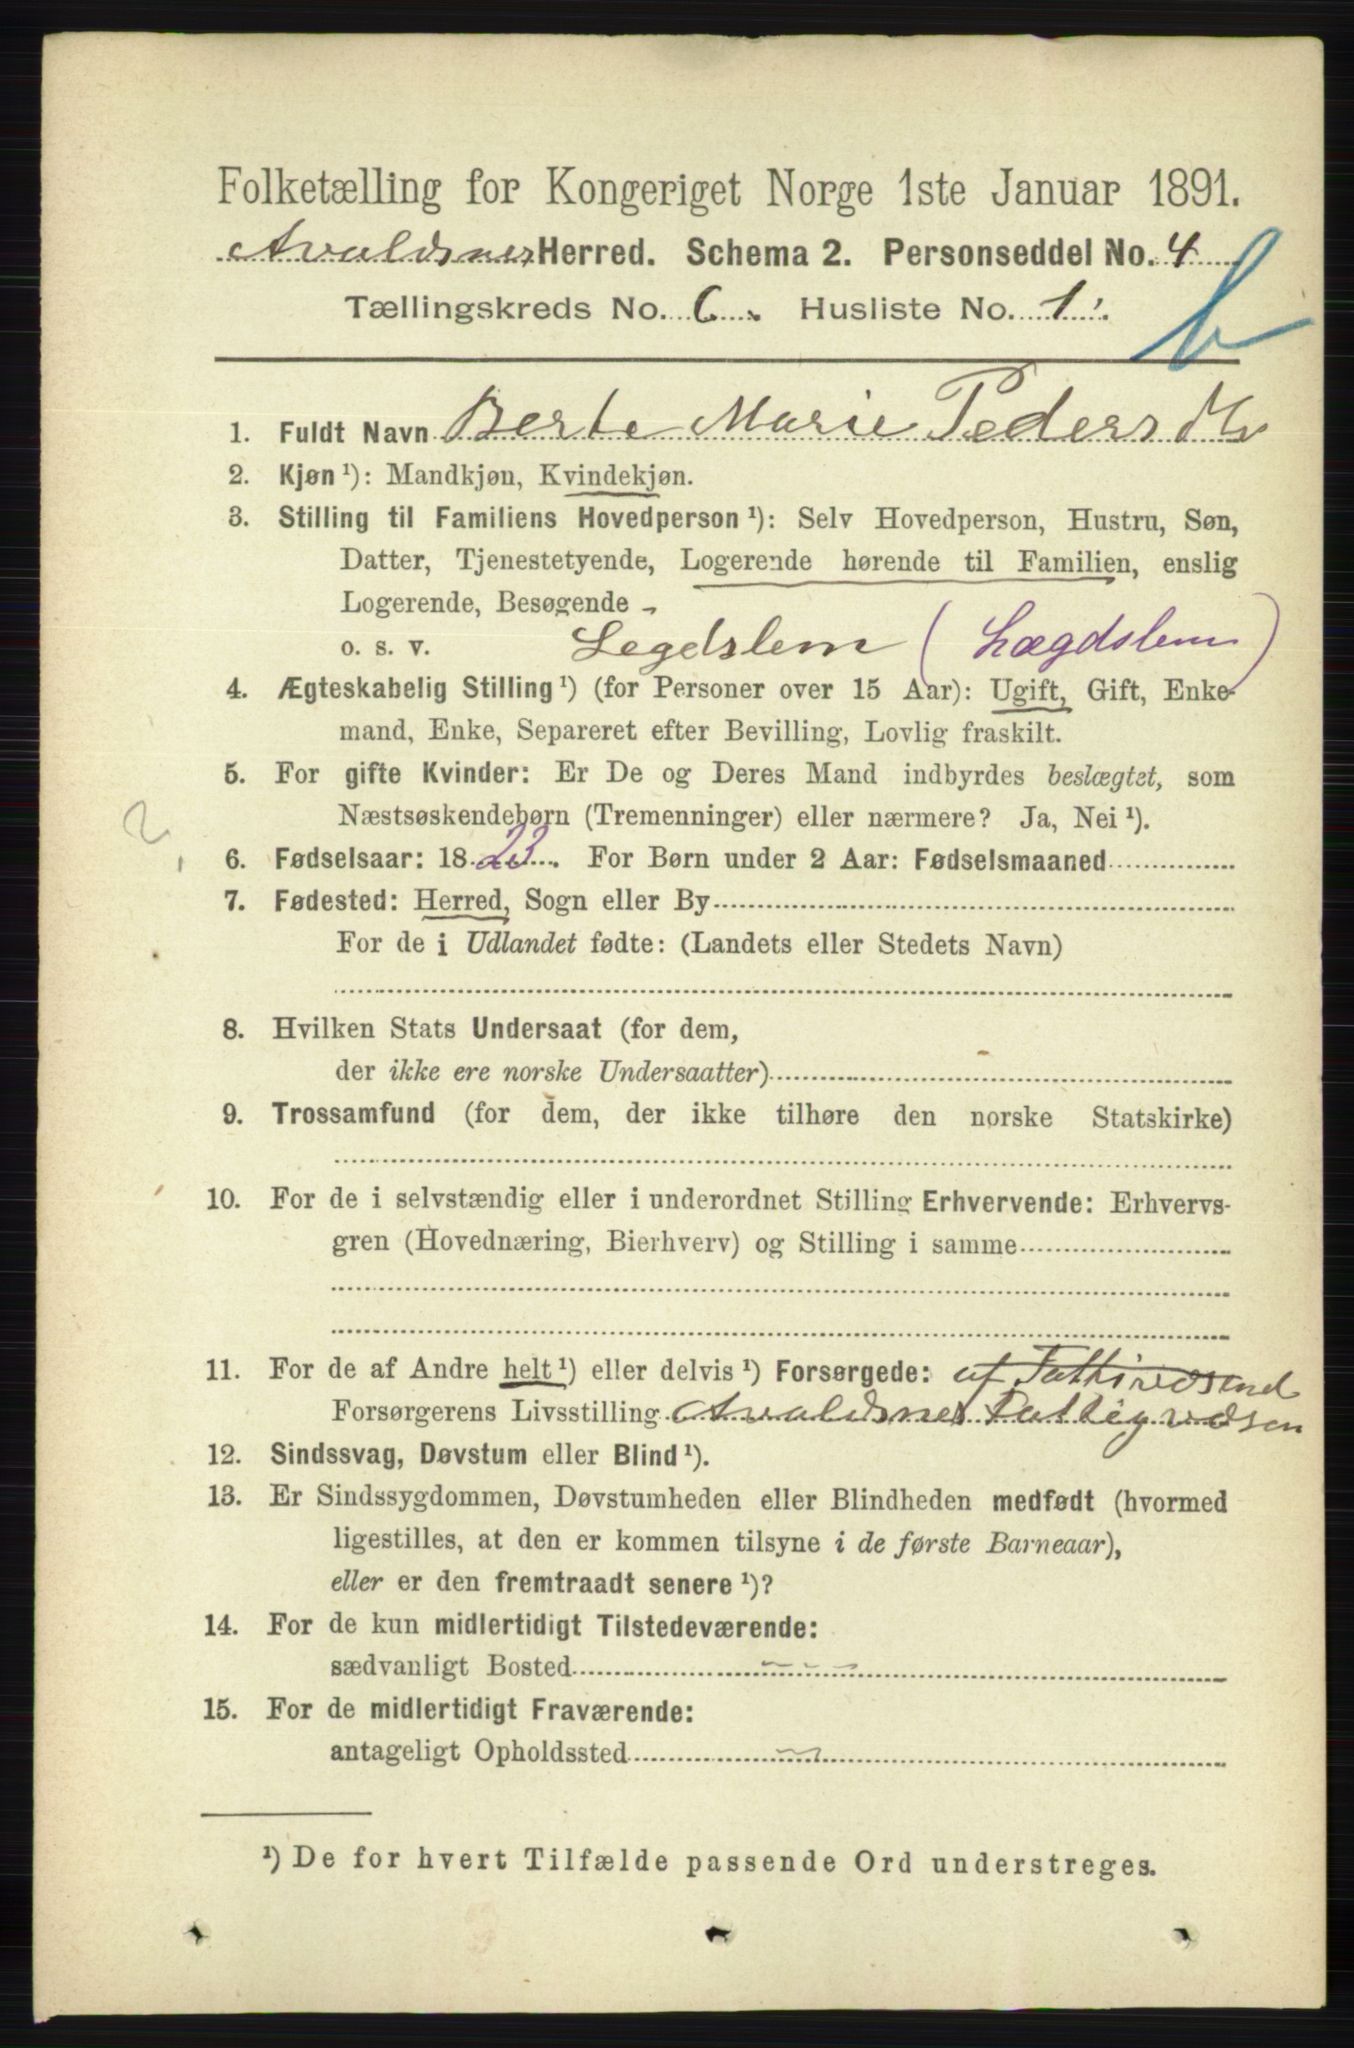 Folketælling for Kongeriget Norge 1ste Januar 1891.
Avaldsnes Herred. Schema 2. Personseddel No. 4
Tællingskreds No. 6. Husliste No. 1.
b
1. Fuldt Navn Berte Marie Peders Dtr
2. Kjøn ¹): Mandkjøn, Kvindekjøn.
3. Stilling til Familiens Hovedperson ¹): Selv Hovedperson, Hustru, Søn,
Datter, Tjenestetyende, Logerende hørende til Familien, enslig
Logerende, Besøgende
o. s. v. Legdslem (Lægdslem)
4. Ægteskabelig Stilling ¹) (for Personer over 15 Aar): Ugift, Gift, Enke-
mand, Enke, Separeret efter Bevilling, Lovlig fraskilt.
5. For gifte Kvinder: Er De og Deres Mand indbyrdes beslægtet, som
Næstsøskendebørn (Tremenninger) eller nærmere? Ja, Nei ¹).
2,
6. Fødselsaar: 1823. For Børn under 2 Aar: Fødselsmaaned
7. Fødested: Herred, Sogn eller By
For de i Udlandet fødte: (Landets eller Stedets Navn)
8. Hvilken Stats Undersaat (for dem,
der ikke ere norske Undersaatter)
9. Trossamfund (for dem, der ikke tilhøre den norske Statskirke)
10. For de i selvstændig eller i underordnet Stilling Erhvervende: Erhvervs-
gren (Hovednæring, Bierhverv) og Stilling i samme
11. For de af Andre helt ¹) eller delvis ¹) Forsørgede: af
Forsørgerens Livsstilling Avaldsnes Fattigvæsen
12. Sindssvag, Døvstum eller Blind ¹).
13. Er Sindssygdommen, Døvstumheden eller Blindheden medfødt (hvormed
ligestilles, at den er kommen tilsyne i de første Barneaar),
eller er den fremtraadt senere ¹)?
14. For de kun midlertidigt Tilstedeværende:
sædvanligt Bosted
15. For de midlertidigt Fraværende:
antageligt Opholdssted
¹) De for hvert Tilfælde passende Ord understreges.